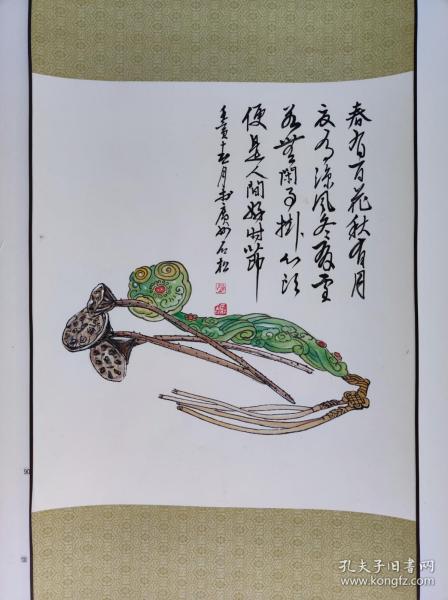 春有百花秋有月
夏有凉风冬有雪
若无闲事挂心头
便是人间好时节
月书广州石松
90
孔夫子旧书网
www.kongfz.com